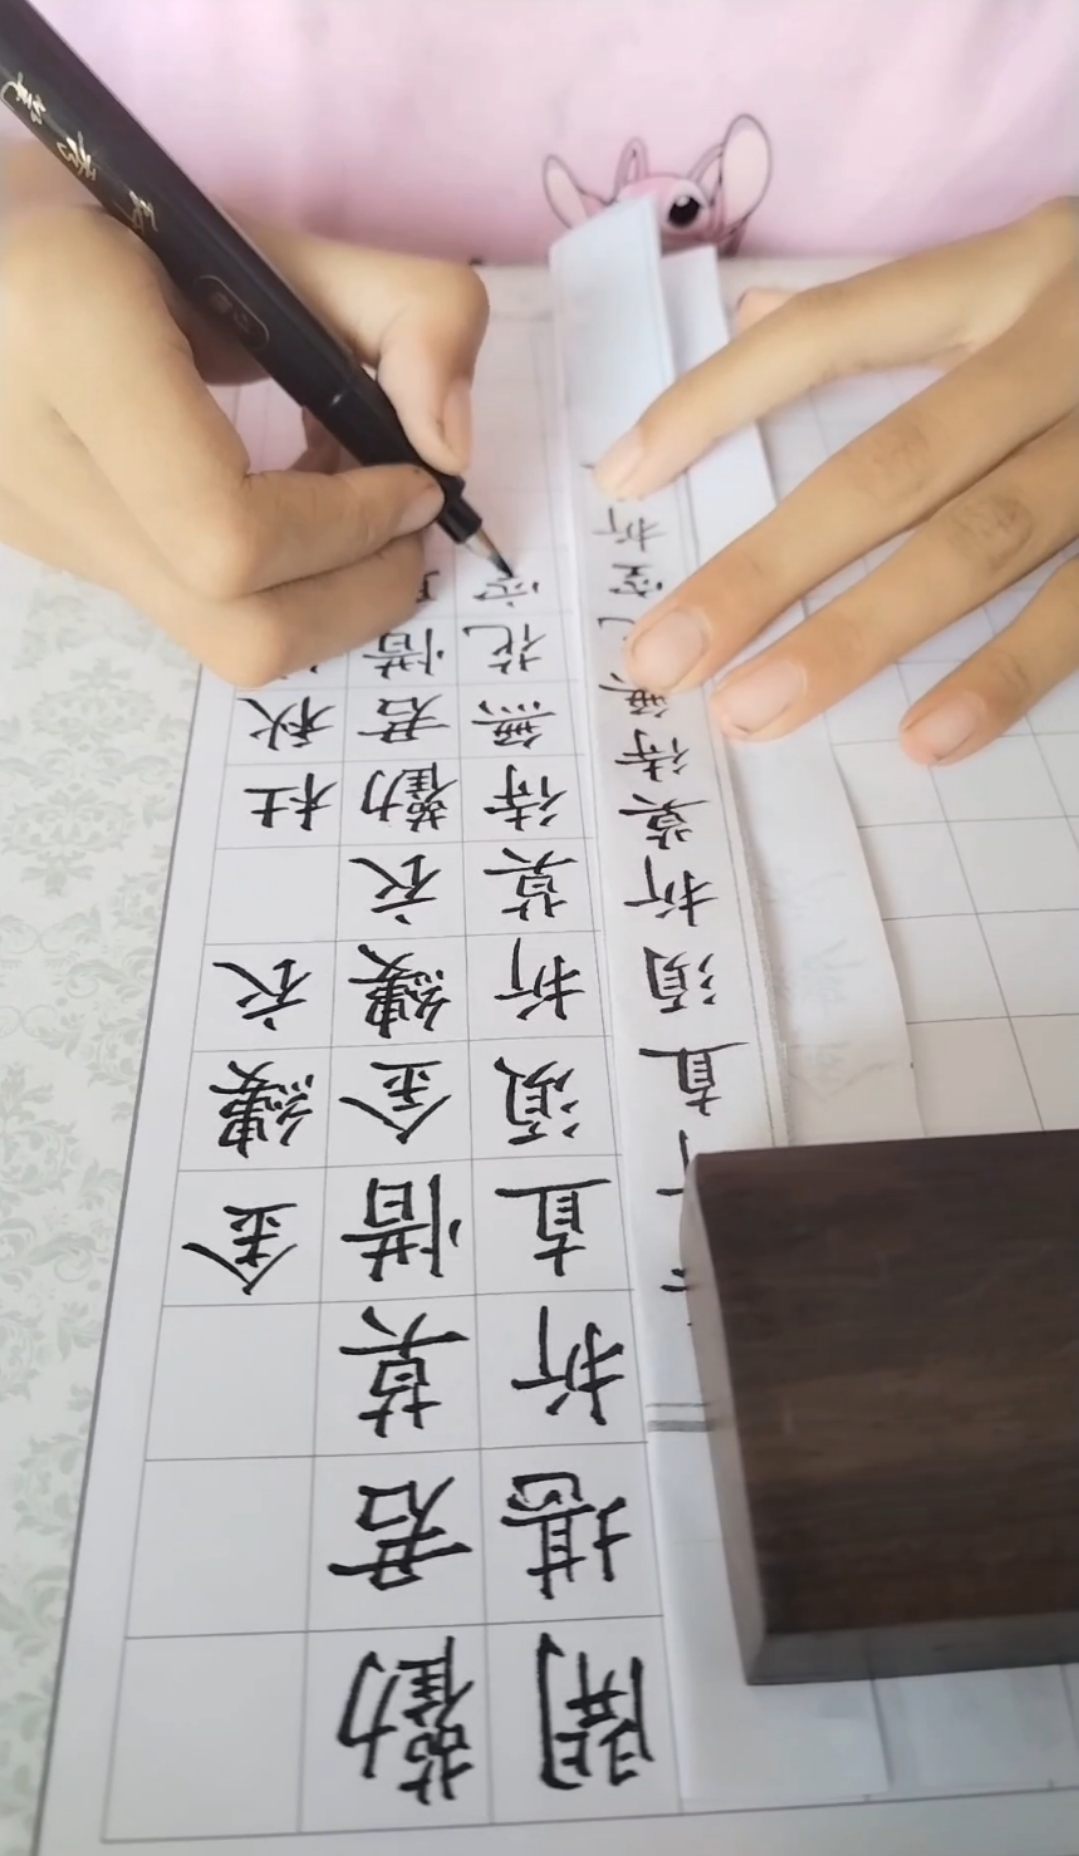 金縷衣 杜秋
勸君莫惜金縷衣勸君惜
開堪折直須折莫待無花空
直須折莫待無花空折